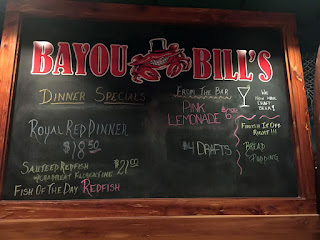 BAYOU BILL'S
DINNER SPECIALS
ROYAL RED DINNER
$18.50
SAUTEED REDFISH
W/CRABMEAT FLORENTINE $21.00
FISH OF THE DAY REDFISH
FROM THE BAR
PINK
LEMONADE
$4 DRAFTS
WE
NOW HAVE
CRAFT
BEER!
FINISH IT OFF
RIGHT!!!
BREAD
PUDDING